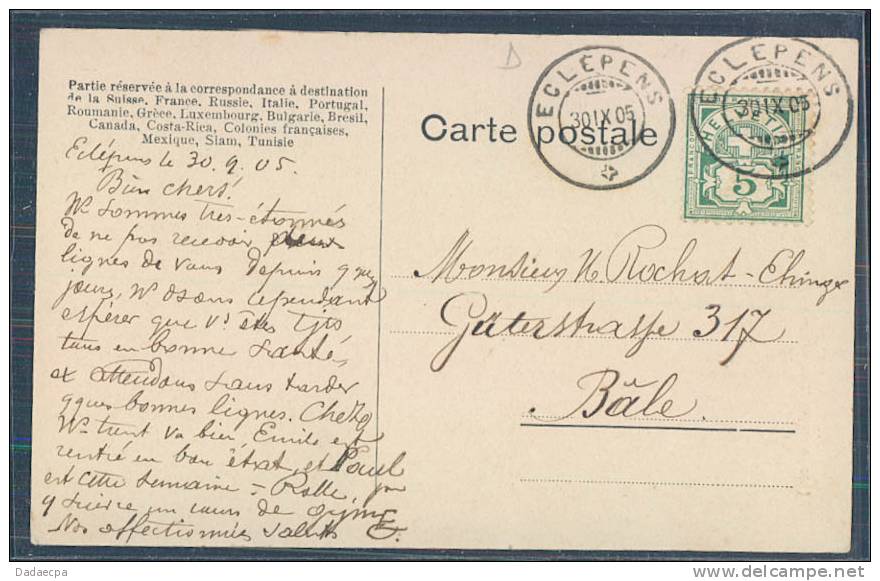 Partie réservée à la correspondance à destination
de la Suisse, France, Russie, Italie, Portugal,
Roumanie, Grèce, Luxembourg, Bulgarie, Brésil,
Canada, Costa-Rica, Colonies françaises,
Mexique, Siam, Tunisie
Eclépens le 30.9.05.
Bien chers!
Ns sommes très-étonnés
de ne pas recevoir
lignes de vous depuis qques
jours, Ns osons cependant
espérer que vs êtes tjrs
tous en bonne santé,
et attendons sans tarder
qques bonnes lignes. Chez
tout va bien, Emile est
rentré en bon état, et Paul
est cette semaine à Rolle, pour
y suivre un cours de gym
Nos affectionnées saluts
Carte postale
ECLEPENS
30 IX 05
ECLEPENS
30 IX 05
HELVETIA
FRANCO
5
Monsieur H Rochat-
Güterstrasse 317
Bâle.
D
Dadaecpa